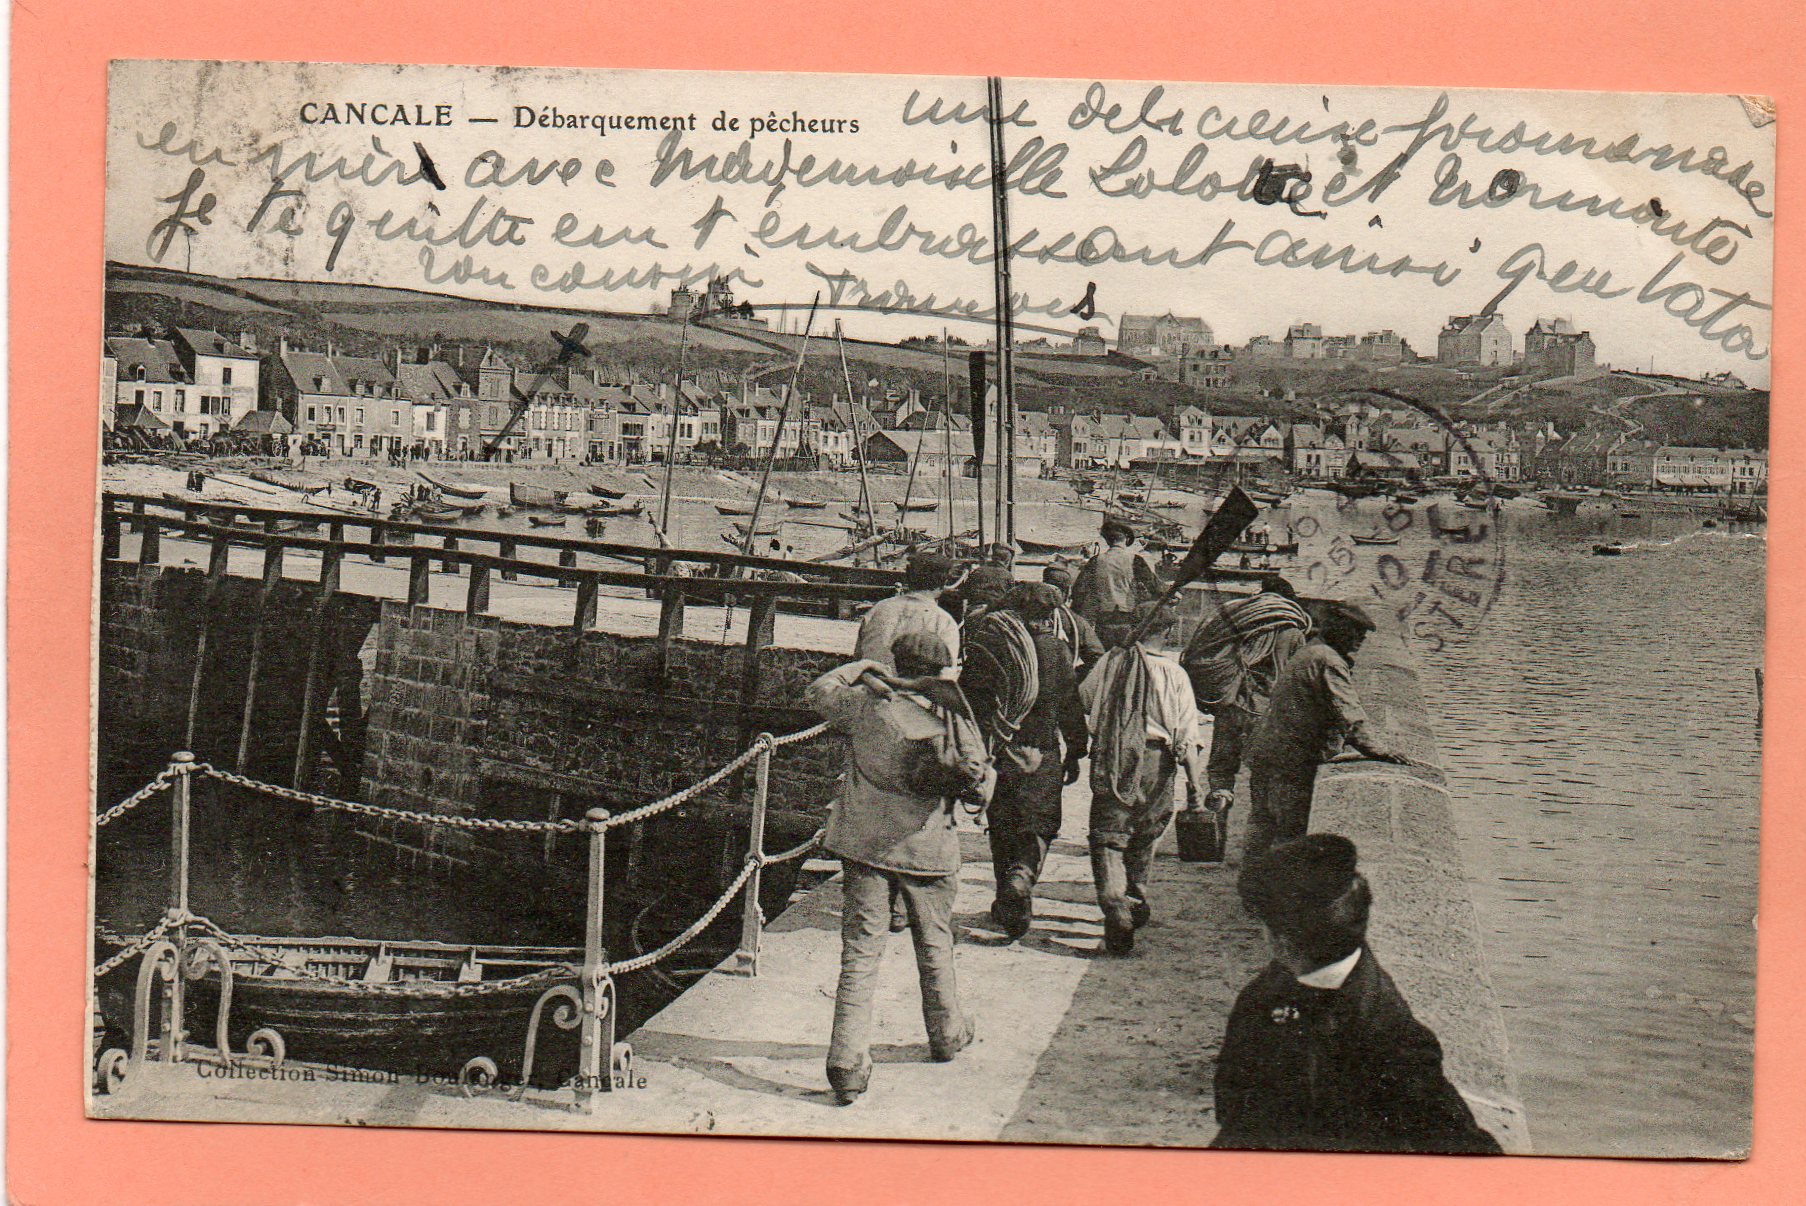 CANCALE — Débarquement de pêcheurs
une delicieuse promenade
en mer avec Mademoiselle Lolotte et
Je te quitte en t'embrassant ainsi que
ton cousin François
25-8
10
STÈRE
Collection Simon Boulanger, Cancale